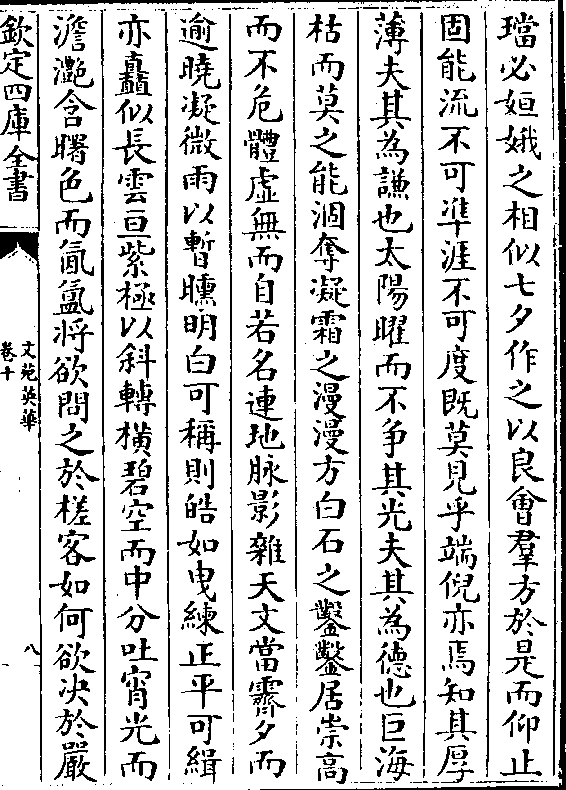 璫必姮娥之相似七夕作之以良會羣方於是而仰止
固能流不可準涯不可度既莫見乎端倪亦焉知其厚
薄夫其為謙也太陽曜而不争其光夫其為德也巨海
枯而莫之能涸奪凝霜之漫漫方白石之鑿鑿居崇高
而不危體虛無而自若名連地脉影雜天文當霽夕而
逾曉凝微雨以暫曛明白可稱則皓如曳練正平可緝
亦矗似長雲亘紫極以斜轉橫碧空而中分吐宵光而
澹灧含曙色而氤氲将欲問之於槎客如何欲决於嚴
欽定四庫全書
文苑英華
卷十
八